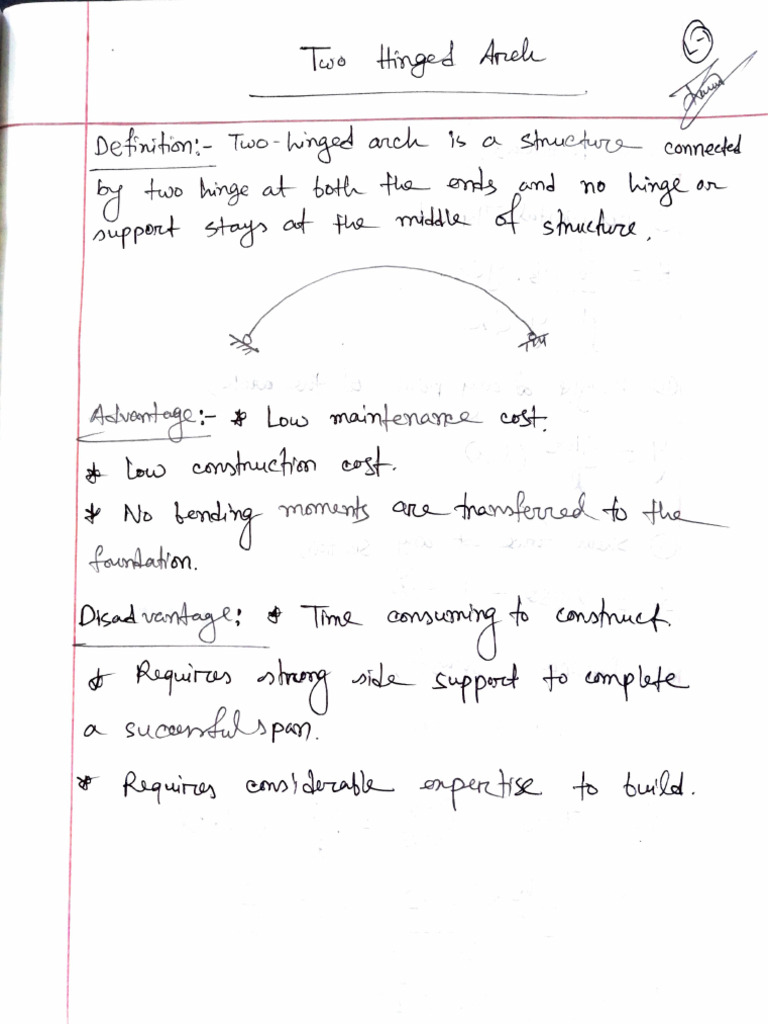 Two Hinged Arch
Definition:- Two-hinged arch is a structure connected
by two hinge at both the ends and no hinge or
support stays at the middle of structure.
Advantage:- * Low maintenance cost.
* Low construction cost.
* No bending moments are transferred to the
foundation.
Disadvantage: * Time consuming to construct.
* Requires strong side support to complete
a successful span.
* Requires considerable expertise to build.